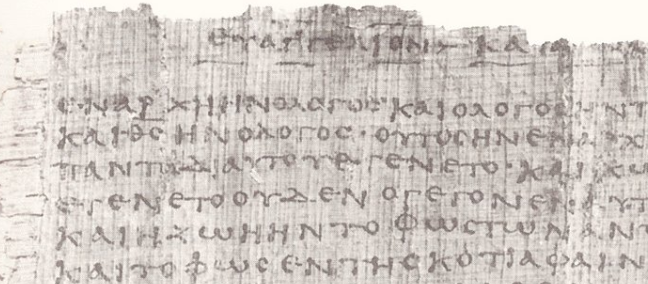 ΕΥΑΓΓΕΛΙΟΝ ΚΑ
ΕΝΑΡΧΗΗΝΟΛΟΓΟΣΚΑΙΟΛΟΓΟΣ
ΚΑΙΘΣΗΝΟΛΟΓΟΣ·ΟΥΤΟΣΗΝΕΝ
ΠΑΝΤΑΔΙΑΥΤΟΥΕΓΕΝΕΤΟ·ΚΑΙΧΩ
ΕΓΕΝΕΤΟΟΥΔΕΝΟΓΕΓΟΝΕΝ
ΚΑΙΗΖΩΗΗΝΤΟΦΩΣΤΩΝΑΝ
ΚΑΙΤΟΦΩΣΕΝΤΗΣΚΟΤΙΑΦΑΙΝ